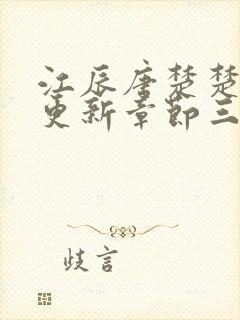 江辰唐楚楚
更新章节三
歧言